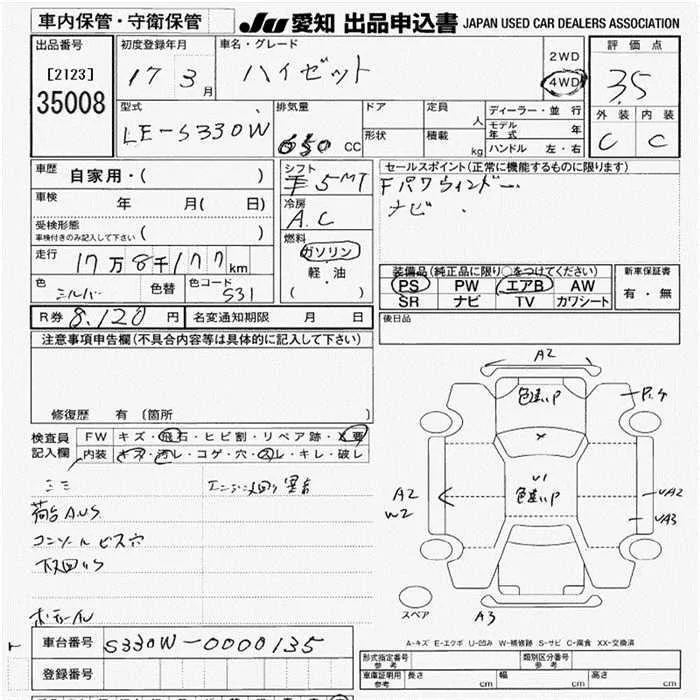 車内保管・守衛保管
JU 愛知 出品申込書 JAPAN USED CAR DEALERS ASSOCIATION
出品番号
[2123]
35008
初度登録年月
17 3 月
車名・グレード
ハイゼット
2WD
4WD
評価点
3.5
外装 内装
C C
型式
LE-S330W
排気量
650 CC
ドア
形状
定員 人
積載 kg
ディーラー・並行
モデル年式 年
ハンドル 左・右
車歴
自家用・( )
車検 年 月( 日)
受検形態
車検付きのみ記入して下さい ( )
走行
17万8千177km
色 シルバー 色替 色コード S31
シフト
手 5MT
冷房
A.C
燃料
ガソリン
軽・油
( )
セールスポイント(正常に機能するものに限ります)
Fパワウィンドー
ナビ
装備品(純正品に限り○をつけてください)
PS PW エアB AW
SR ナビ TV カワシート
新車保証書
有・無
R券 8.120 円 名変通知期限 月 日
後日品
注意事項申告欄(不具合内容等は具体的に記入して下さい)
修復歴 有 (箇所 )
検査員
記入欄
FW キズ・飛石・ヒビ割・リペア跡・X要
内装 キズ・汚レ・コゲ・穴・スレ・キレ・破レ
荷台A.US
コンソールビス穴
下回りS
A2
色違いP
P.キ
U1
色違いP
A2
W2
UA2
UA3
スペア
A3
A-キズ E-エクボ U-凹み W-補修跡 S-サビ C-腐食 XX-交換済
車台番号 S330W-0000135
登録番号
型式指定番号 参考
類別区分番号 参考
車庫証明用 参考 長さ 幅 高さ